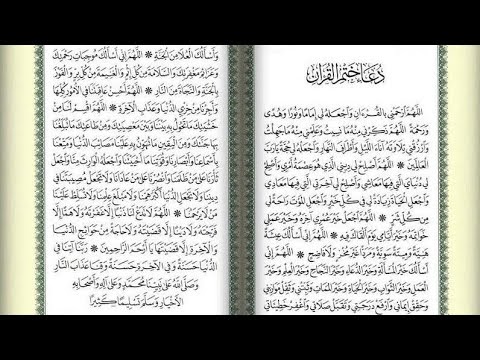 دُعَاءُ خَتْمِ الْقُرْآنِ
اللَّهُمَّ ارْحَمْنِي بِالْقُرْءَانِ وَاجْعَلْهُ لِي إِمَامًا وَنُورًا وَهُدًى
وَرَحْمَةً * اللَّهُمَّ ذَكِّرْنِي مِنْهُ مَا نَسِيتُ وَعَلِّمْنِي مِنْهُ مَا جَهِلْتُ
وَارْزُقْنِي تِلَاوَتَهُ آنَاءَ اللَّيْلِ وَأَطْرَافَ النَّهَارِ وَاجْعَلْهُ لِي حُجَّةً يَارَبَّ
الْعَالَمِينَ * اللَّهُمَّ أَصْلِحْ لِي دِينِي الَّذِي هُوَ عِصْمَةُ أَمْرِي وَأَصْلِحْ
لِي دُنْيَايَ الَّتِي فِيهَا مَعَاشِي وَأَصْلِحْ لِي آخِرَتِي الَّتِي فِيهَا مَعَادِي
وَاجْعَلِ الْحَيَاةَ زِيَادَةً لِي فِي كُلِّ خَيْرٍ وَاجْعَلِ الْمَوْتَ رَاحَةً لِي
مِنْ كُلِّ شَرٍّ * اللَّهُمَّ اجْعَلْ خَيْرَ عُمْرِي آخِرَهُ وَخَيْرَ عَمَلِي
خَوَاتِمَهُ وَخَيْرَ أَيَّامِي يَوْمَ أَلْقَاكَ فِيهِ * اللَّهُمَّ إِنِّي أَسْأَلُكَ عِيشَةً
هَنِيَّةً وَمِيتَةً سَوِيَّةً وَمَرَدًّا غَيْرَ مُخْزٍ وَلَا فَاضِحٍ * اللَّهُمَّ إِنِّي
أَسْأَلُكَ خَيْرَ الْمَسْأَلَةِ وَخَيْرَ الدُّعَاءِ وَخَيْرَ النَّجَاحِ وَخَيْرَ الْعِلْمِ وَخَيْرَ
الْعَمَلِ وَخَيْرَ الثَّوَابِ وَخَيْرَ الْحَيَاةِ وَخَيْرَ الْمَمَاتِ وَثَبِّتْنِي وَثَقِّلْ مَوَازِينِي
وَحَقِّقْ إِيمَانِي وَارْفَعْ دَرَجَتِي وَتَقَبَّلْ صَلَاتِي وَاغْفِرْ خَطِيئَاتِي
وَأَسْأَلُكَ الْعُلَا مِنَ الْجَنَّةِ * اللَّهُمَّ إِنِّي أَسْأَلُكَ مُوجِبَاتِ رَحْمَتِكَ
وَعَزَائِمَ مَغْفِرَتِكَ وَالسَّلَامَةَ مِنْ كُلِّ إِثْمٍ وَالْغَنِيمَةَ مِنْ كُلِّ بِرٍّ وَالْفَوْزَ
بِالْجَنَّةِ وَالنَّجَاةَ مِنَ النَّارِ * اللَّهُمَّ أَحْسِنْ عَاقِبَتَنَا فِي الْأُمُورِ كُلِّهَا
وَأَجِرْنَا مِنْ خِزْيِ الدُّنْيَا وَعَذَابِ الْآخِرَةِ * اللَّهُمَّ اقْسِمْ لَنَا مِنْ
خَشْيَتِكَ مَا تَحُولُ بِهِ بَيْنَنَا وَبَيْنَ مَعْصِيَتِكَ وَمِنْ طَاعَتِكَ مَا تُبَلِّغُنَا
بِهَا جَنَّتَكَ وَمِنَ الْيَقِينِ مَا تُهَوِّنُ بِهِ عَلَيْنَا مَصَائِبَ الدُّنْيَا وَمَتِّعْنَا
بِأَسْمَاعِنَا وَأَبْصَارِنَا وَقُوَّتِنَا مَا أَحْيَيْتَنَا وَاجْعَلْهُ الْوَارِثَ مِنَّا وَاجْعَلْ
ثَأْرَنَا عَلَى مَنْ ظَلَمَنَا وَانْصُرْنَا عَلَى مَنْ عَادَانَا وَلَا تَجْعَلْ مُصِيبَتَنَا فِي
دِينِنَا وَلَا تَجْعَلِ الدُّنْيَا أَكْبَرَ هَمِّنَا وَلَا مَبْلَغَ عِلْمِنَا وَلَا تُسَلِّطْ عَلَيْنَا
مَنْ لَا يَرْحَمُنَا * اللَّهُمَّ لَا تَدَعْ لَنَا ذَنْبًا إِلَّا غَفَرْتَهُ وَلَا هَمًّا إِلَّا
فَرَّجْتَهُ وَلَا دَيْنًا إِلَّا قَضَيْتَهُ وَلَا حَاجَةً مِنْ حَوَائِجِ الدُّنْيَا
وَالْآخِرَةِ إِلَّا قَضَيْتَهَا يَا أَرْحَمَ الرَّاحِمِينَ * رَبَّنَا آتِنَا فِي
الدُّنْيَا حَسَنَةً وَفِي الْآخِرَةِ حَسَنَةً وَقِنَا عَذَابَ النَّارِ
وَصَلَّى اللَّهُ عَلَى نَبِيِّنَا مُحَمَّدٍ وَعَلَى آلِهِ وَأَصْحَابِهِ
الْأَخْيَارِ وَسَلَّمَ تَسْلِيمًا كَثِيرًا